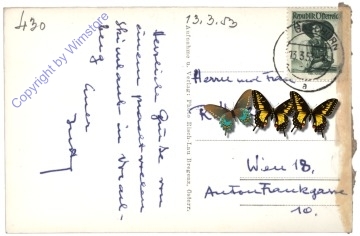 430
Copyright by Wimstore
13.3.53
Herzliche Grüße von
einem prachtvollen
Skiurlaub in Vorarl-
berg Euer
Aufnahme u. Verlag: Photo Risch-Lau Bregenz, Österr.
Republik Österreich
Herrn und Frau
Wien 18,
Anton Frankgasse
10.